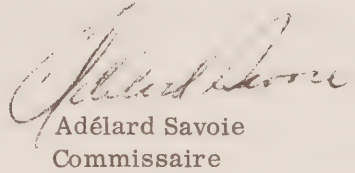 Adélard Savoie
Adélard Savoie
Commissaire